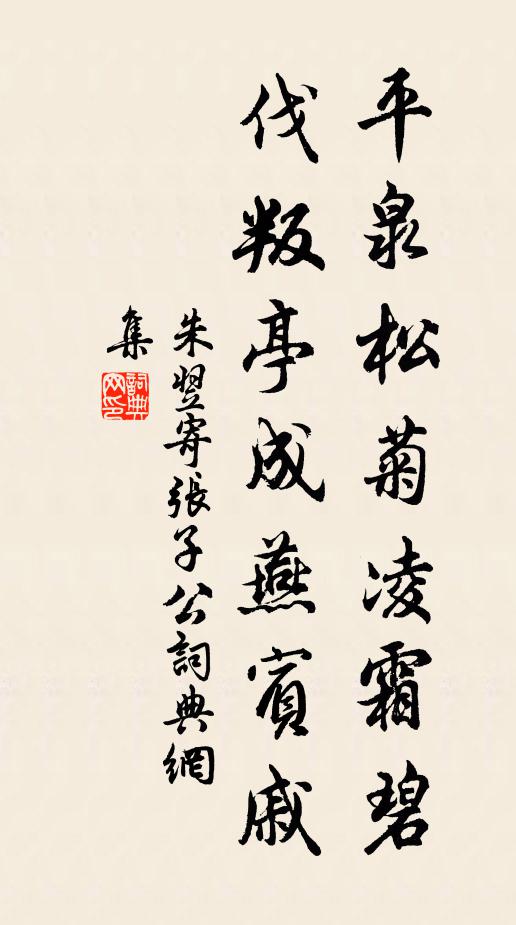 平泉松菊凌霜碧
伐叛亭成燕賓戚
朱翌寄張子公詞典網
集
詞典
網印